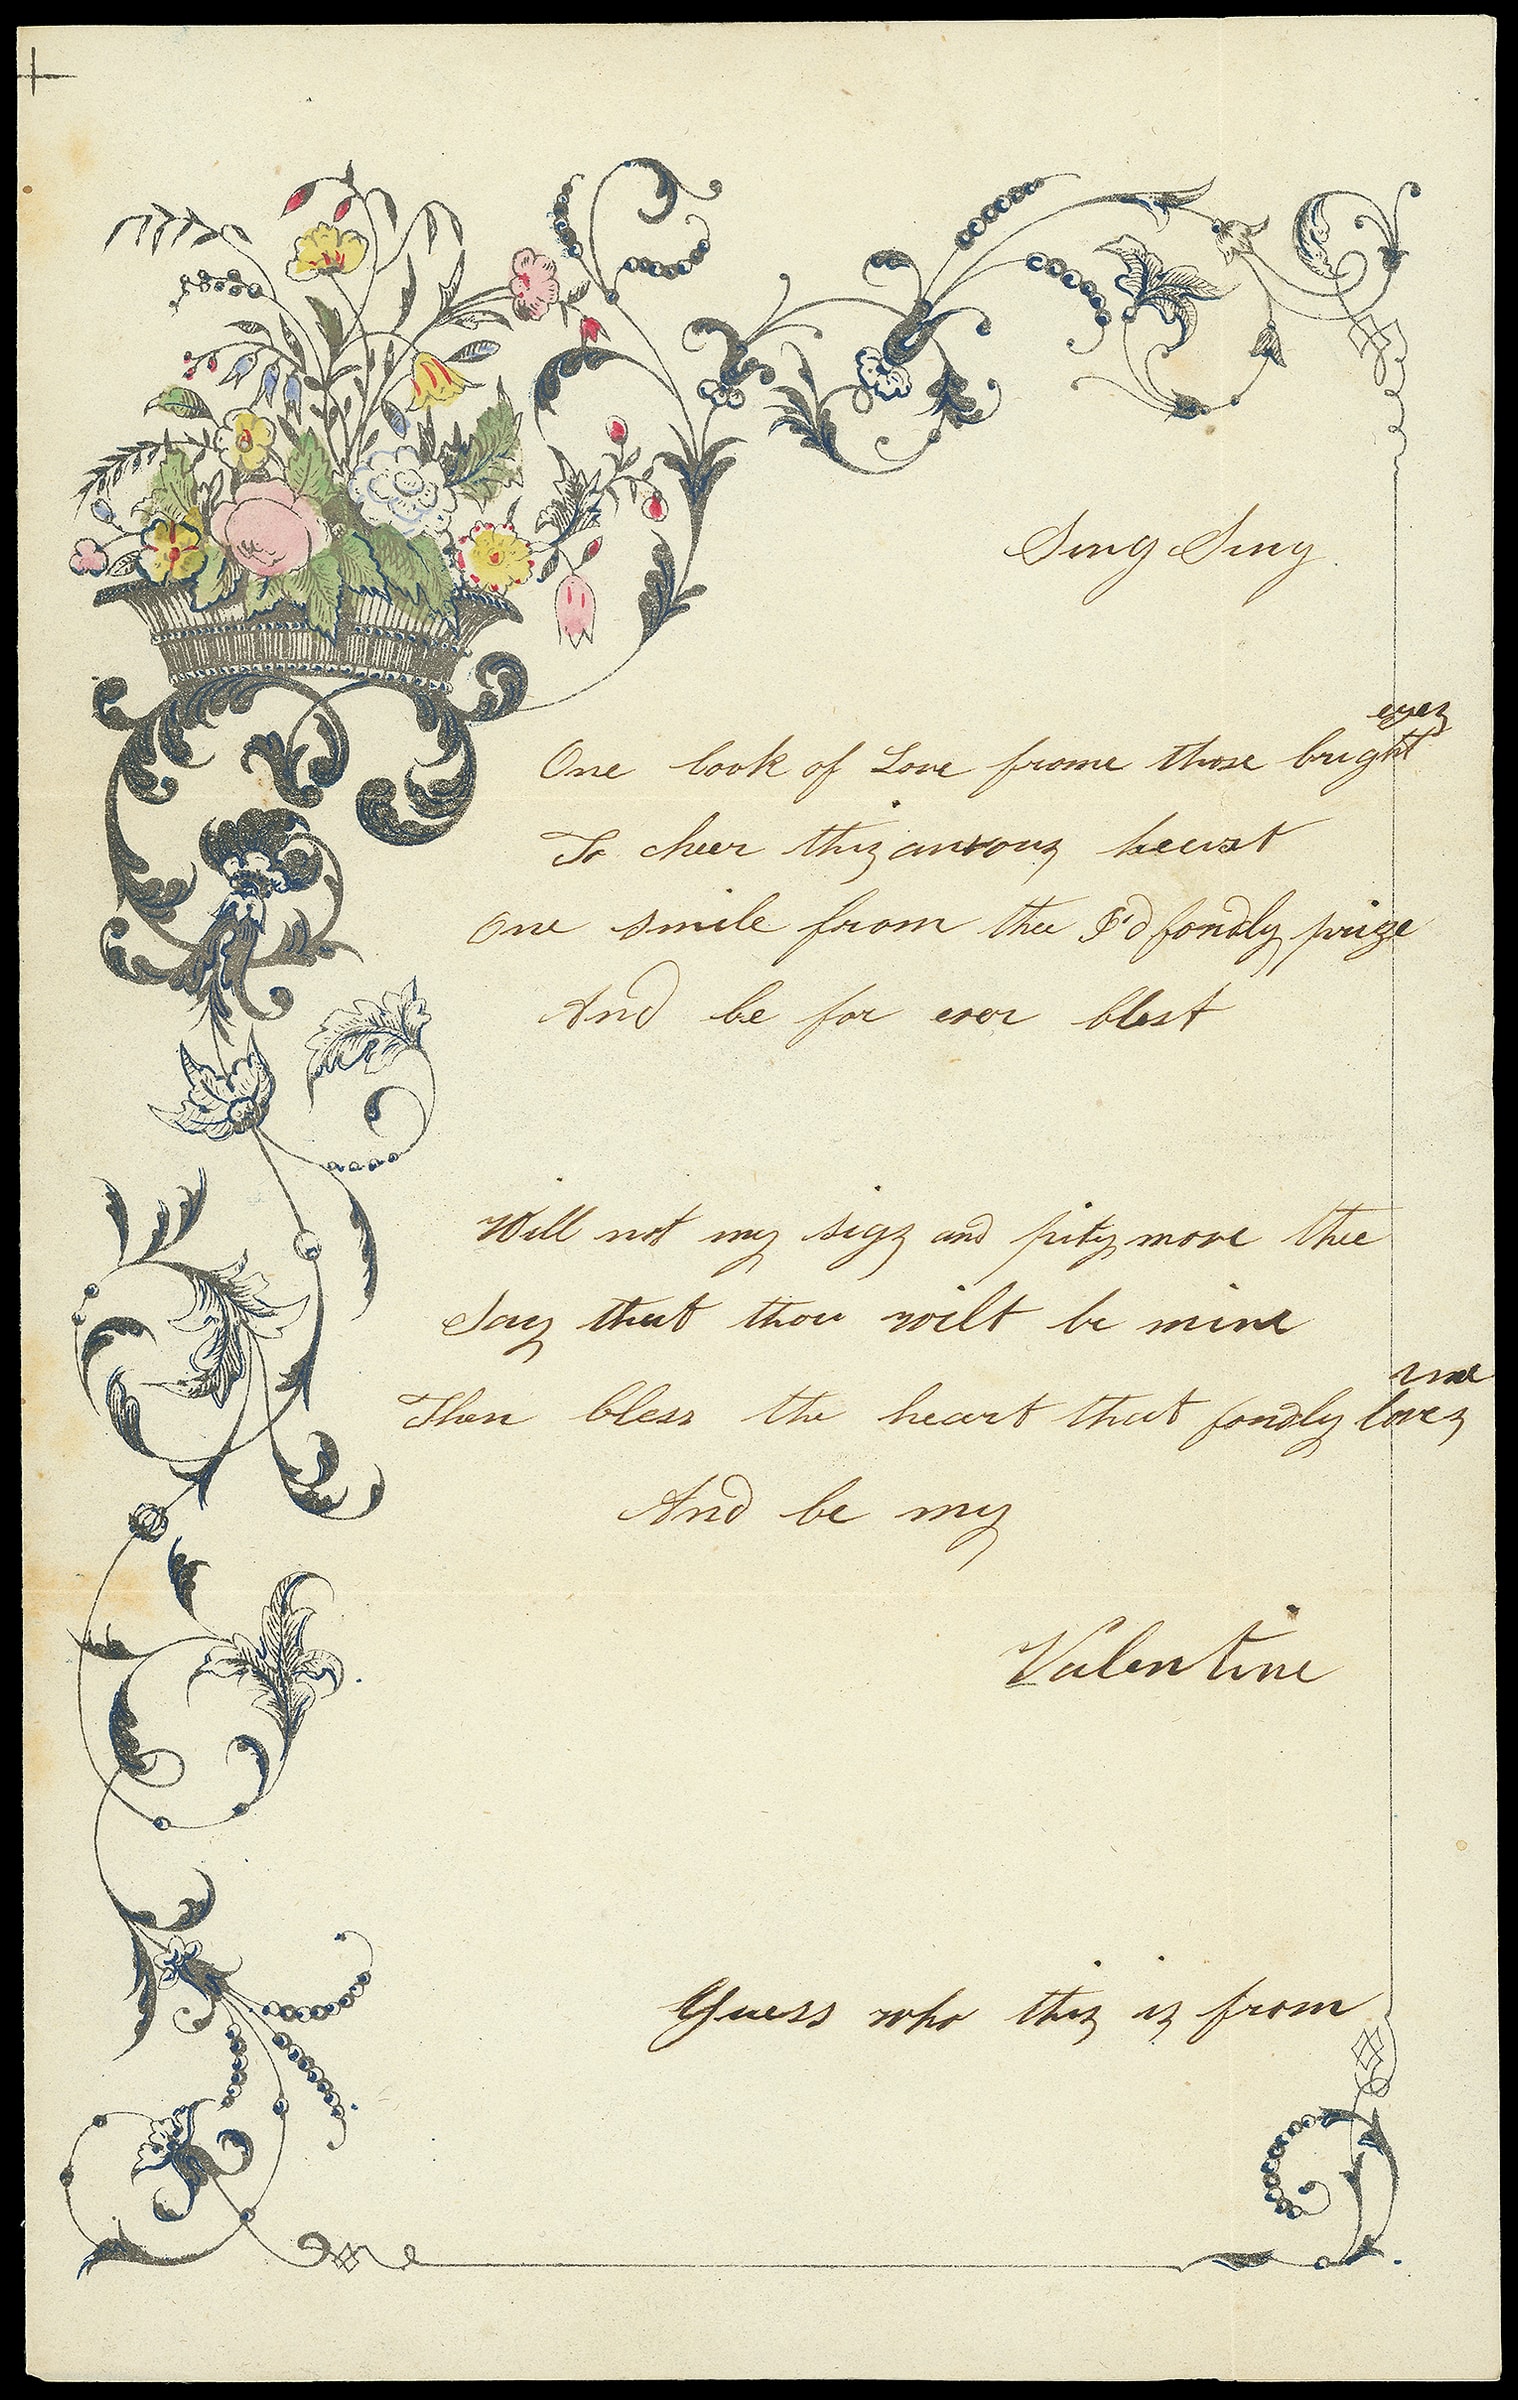 Sing Sing.
One look of Love frome those bright eyes
To cheer this anxous heart
One smile from thee I'd fondly prize
And be for ever blest
Will not my sigs and pity move thee
Say that thou wilt be mine
Then bless the heart that fondly loves
And be my
Valentine
Guess who this is from